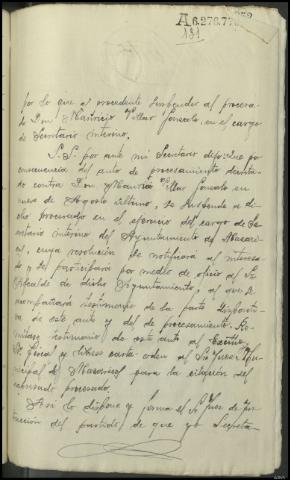 A 6.276.77
131
por lo que es procedente suspender al procesa-
do Don Mauricio Villar Gonzalo, en el cargo
de Secretario interino.
S.S. por ante mi Secretario dijo: que por
consecuencia del auto de procesamiento dictado
contra Don Mauricio Villar Gonzalo en
nueve de Agosto último, se suspende a di-
cho procesado en el ejercicio del cargo de Se-
cretario interino del Ayuntamiento de
cuya resolución se notificará al interesa-
do y se participará por medio de oficio al Sr.
Alcalde de dicho Ayuntamiento, al que se
acompañará testimonio de la parte dispositi-
va de este auto y del de procesamiento. Re-
mítase testimonio de este auto al Excmo.
Sr. Fiscal y líbrese carta orden al Sr. Juez Mu-
nicipal de para la citación del
expresado procesado.
Así lo dispone y firma el Sr. Juez de Ins-
trucción del partido, de que yo Secreta-